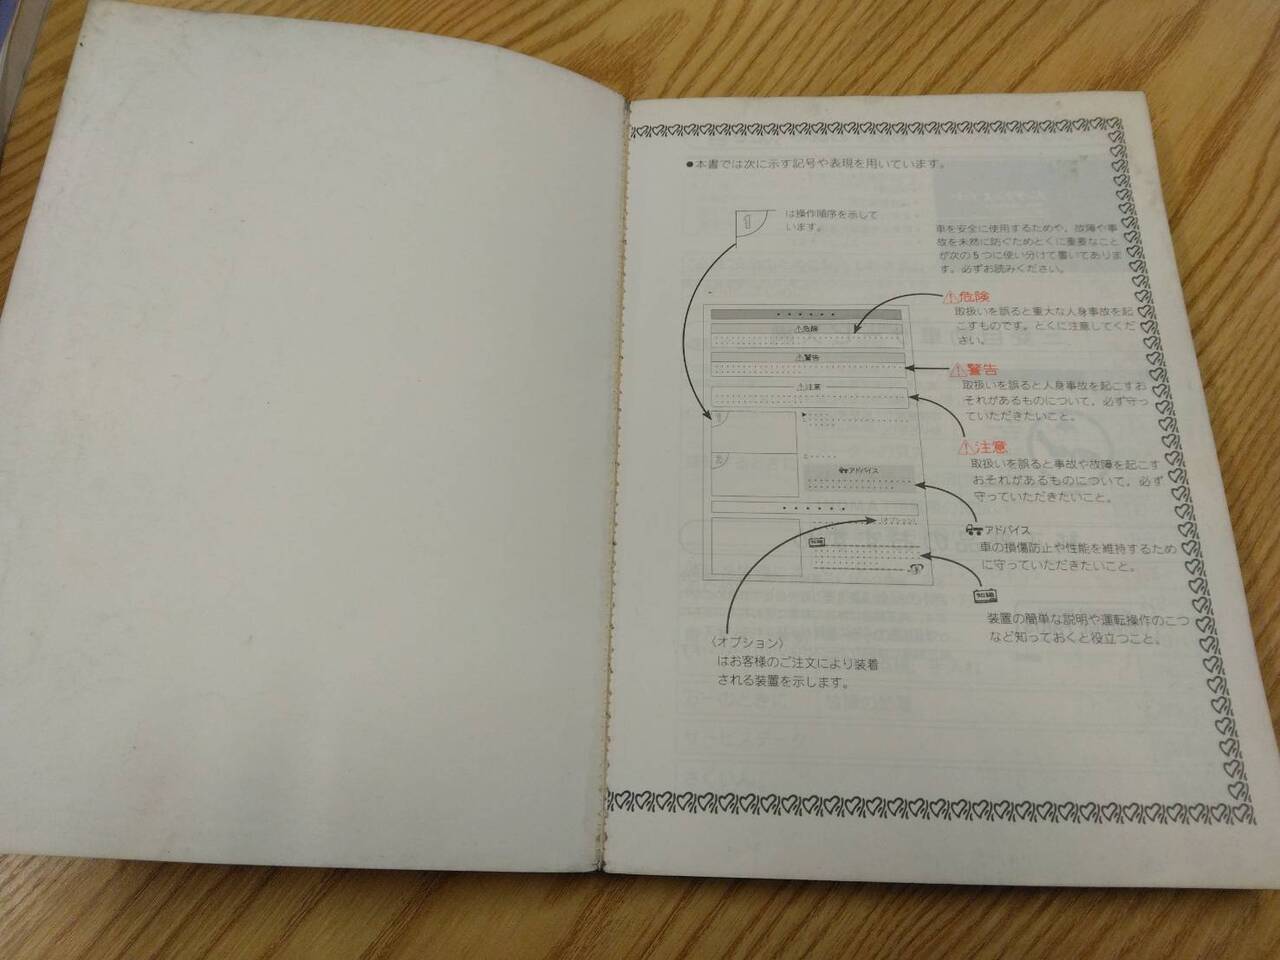 ●本書では次に示す記号や表現を用いています。
1
は操作順序を示して
います。
車を安全に使用するためや、故障や事
故を未然に防ぐためとくに重要なこと
が次の5つに使い分けて書いてありま
す。必ずお読みください。
⚠危険
取扱いを誤ると重大な人身事故を起
こすものです。とくに注意してくだ
さい。
⚠警告
取扱いを誤ると人身事故を起こすお
それがあるものについて、必ず守っ
ていただきたいこと。
⚠注意
取扱いを誤ると事故や故障を起こす
おそれがあるものについて、必ず
守っていただきたいこと。
アドバイス
車の損傷防止や性能を維持するため
に守っていただきたいこと。
知識
装置の簡単な説明や運転操作のこつ
など知っておくと役立つこと。
⚠危険
⚠警告
⚠注意
1
2
アドバイス
オプション
知識
〈オプション〉
はお客様のご注文により装着
される装置を示します。